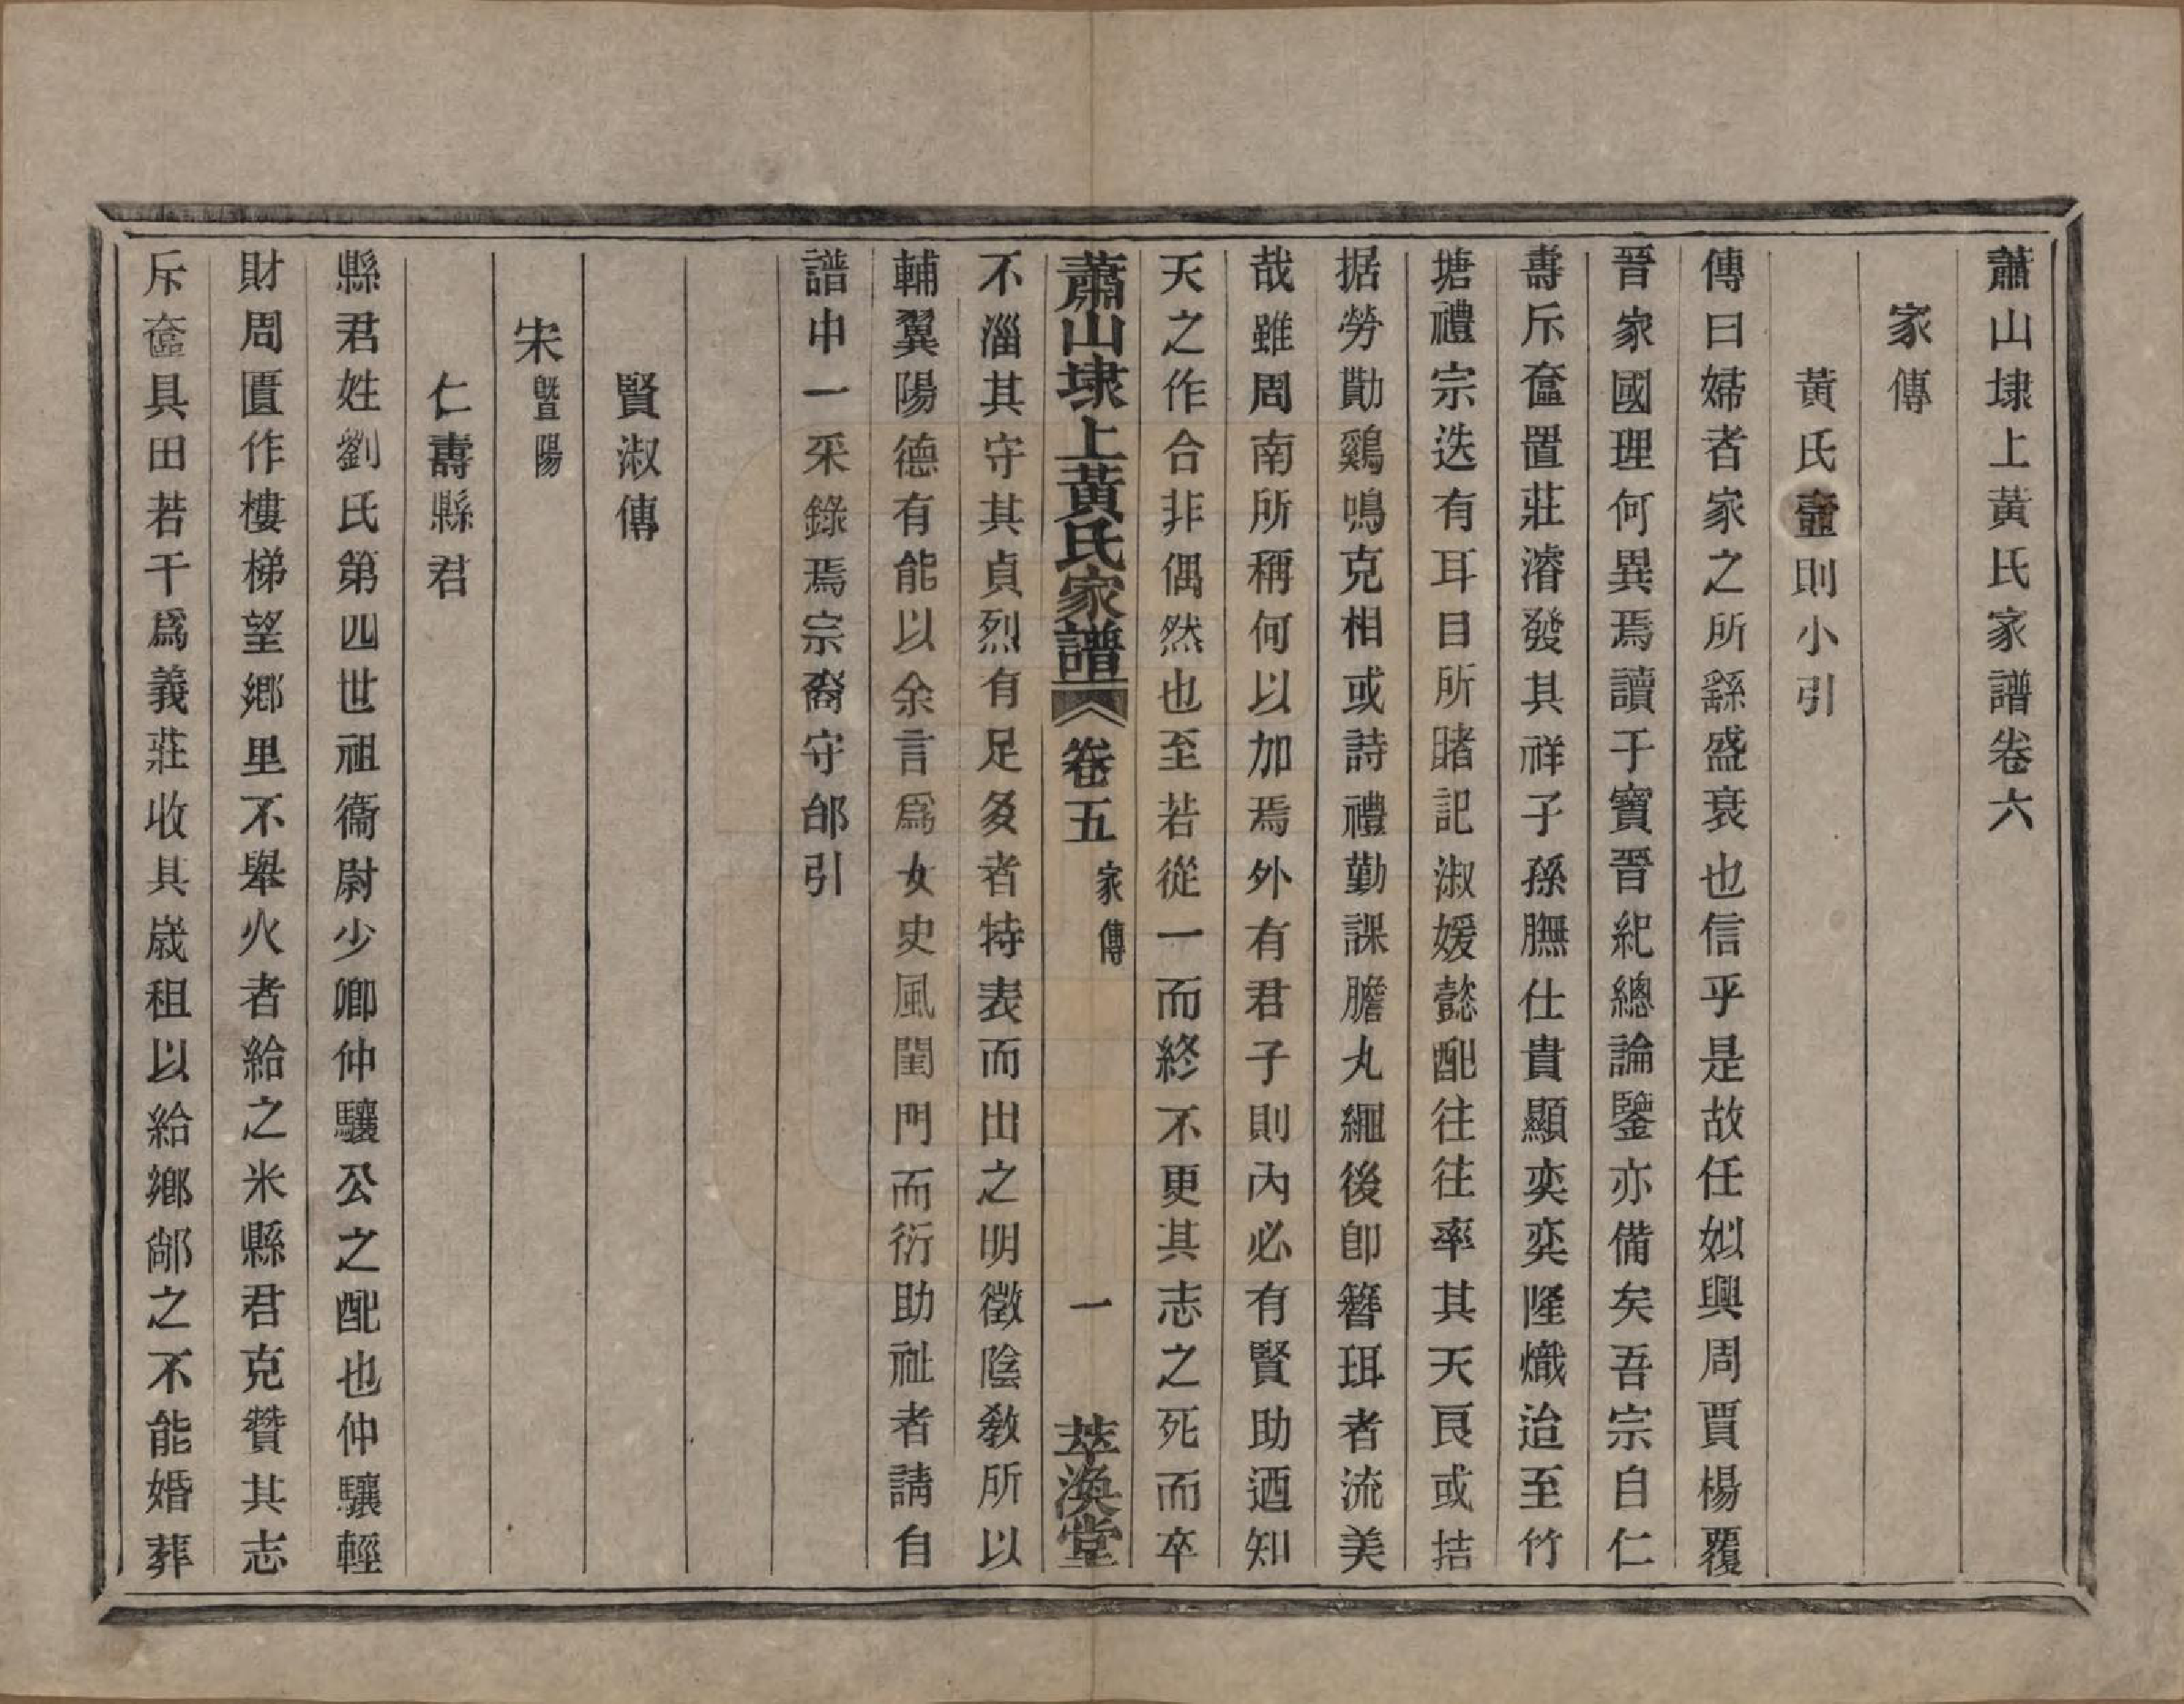 蕭山埭上黃氏家譜卷六
家傳
黃氏壼則小引
傳曰婦者家之所繇盛衰也信乎是故任姒興周賈楊覆
晉家國理何異焉讀于寶晉紀總論鑒亦備矣吾宗自仁
壽斥奩置莊濬發其祥子孫膴仕貴顯奕奕隆熾迨至竹
塘禮宗迭有耳目所睹記淑媛懿配往往率其天良或拮
据勞勩鷄鳴克相或詩禮勤課膽丸繩後卽簪珥者流美
哉雖周南所稱何以加焉外有君子則內必有賢助迺知
天之作合非偶然也至若從一而終不更其志之死而卒
蕭山埭上黃氏家譜 卷五 家傳 一 萃渙堂
不淄其守其貞烈有足多者特表而出之明徵陰教所以
輔翼陽德有能以余言爲女史風閨門而衍助祉者請自
譜中一采錄焉宗裔守邰引
賢淑傳
宋暨陽
仁壽縣君
縣君姓劉氏第四世祖衞尉少卿仲驤公之配也仲驤輕
財周匱作樓梯望鄉里不舉火者給之米縣君克贊其志
斥奩具田若干爲義莊收其歲租以給鄉鄰之不能婚葬